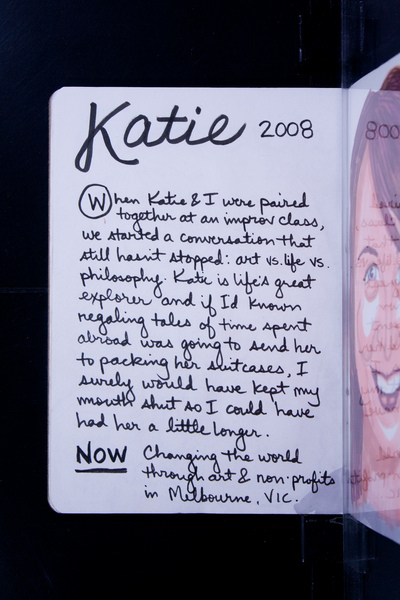 Katie 2008
When Katie & I were paired
together at an improv class,
we started a conversation that
still hasn't stopped: art vs. life vs.
philosophy. Katie is life's great
explorer and if I'd known
regaling tales of time spent
abroad was going to send her
to packing her suitcases, I
surely would have kept my
mouth shut so I could have
had her a little longer.
NOW Changing the world
through art & non-profits
in Melbourne, VIC.